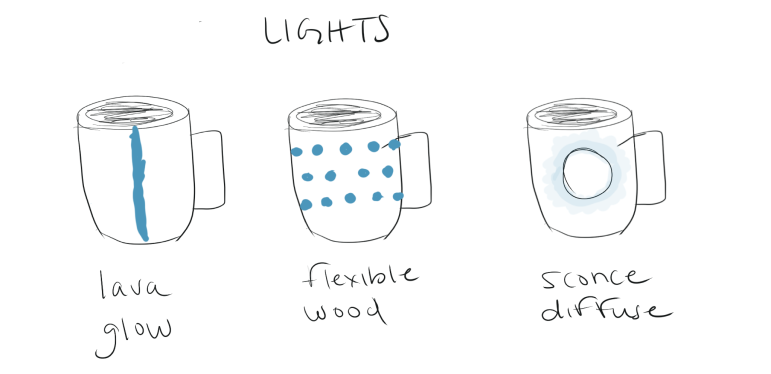 LIGHTS
lava
glow
flexible
wood
sconce
diffuse